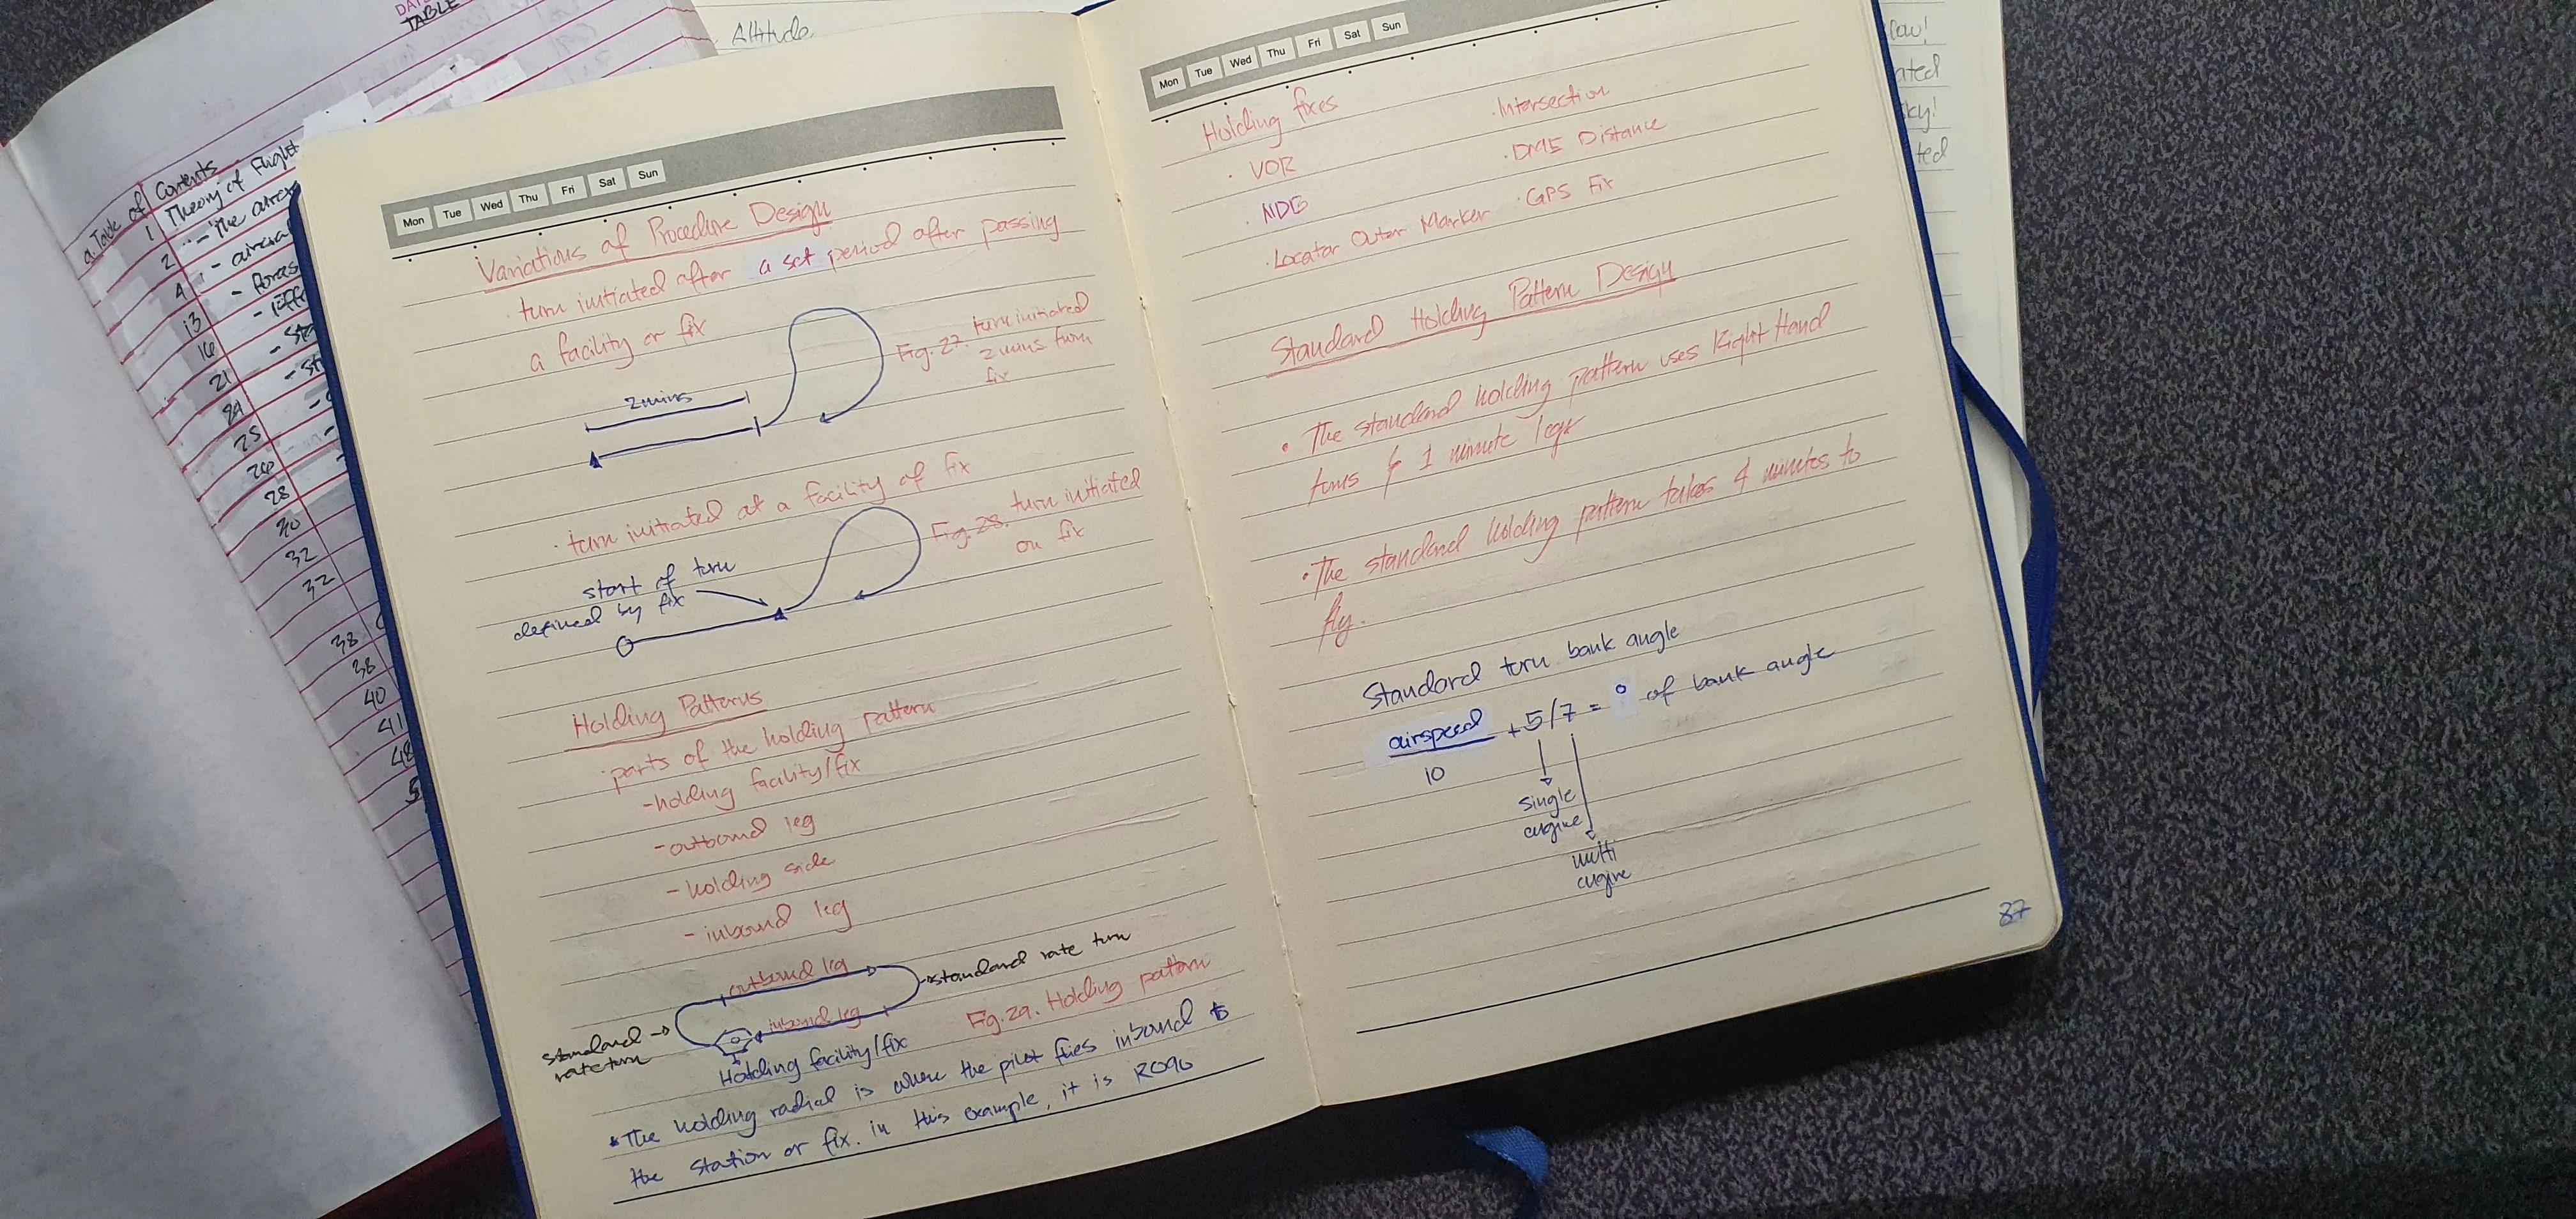 TABLE
a. Table of Contents
1 Theory of Flight
2
4
13
16
21
24
25
26
28
30
32
32
38
38
40
41
Altitude
Mon Tue Wed Thu Fri Sat Sun
Variations of Procedure Design
· turn initiated after a set period after passing
a facility or fix
Fig. 27. turn initiated
2 mins turn
fix
2 mins
· turn initiated at a facility of fix
Fig. 28. turn initiated
on fix
start of turn
defined by fix
Holding Patterns
· parts of the holding pattern
- holding facility/fix
- outbound leg
- holding side
- inbound leg
outbound leg
standard rate turn
inbound leg
Fig. 29. Holding pattern
standard
rate turn
Holding facility/fix
* The holding radial is where the pilot flies inbound to
the station or fix. in this example, it is R090
Mon Tue Wed Thu Fri Sat Sun
Holding fixes
· VOR
· NDB
· Locator Outer Marker
· Intersection
· DME Distance
· GPS Fix
Standard Holding Pattern Design
• The standard holding pattern uses Right Hand
turns & 1 minute legs
• The standard holding pattern takes 4 minutes to
fly.
Standard turn bank angle
airspeed
10
+ 5/7 = ° of bank angle
single
engine
multi
engine
87